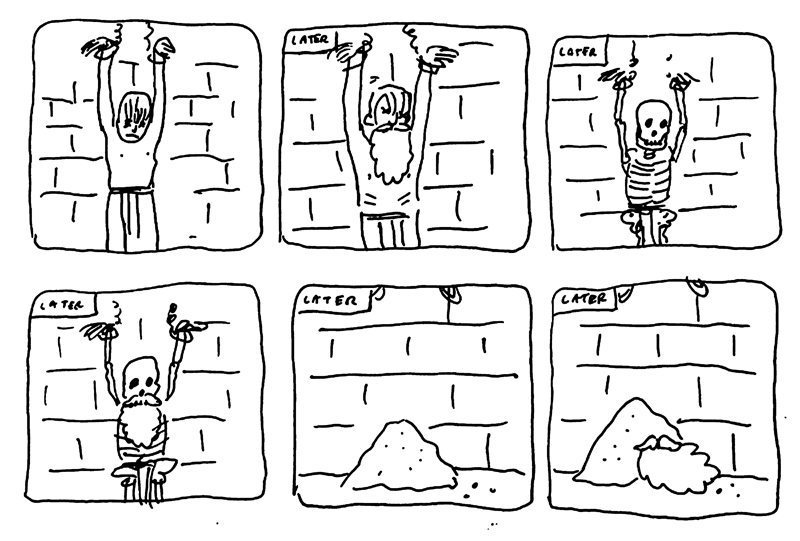 LATER
LATER
LATER
LATER
LATER